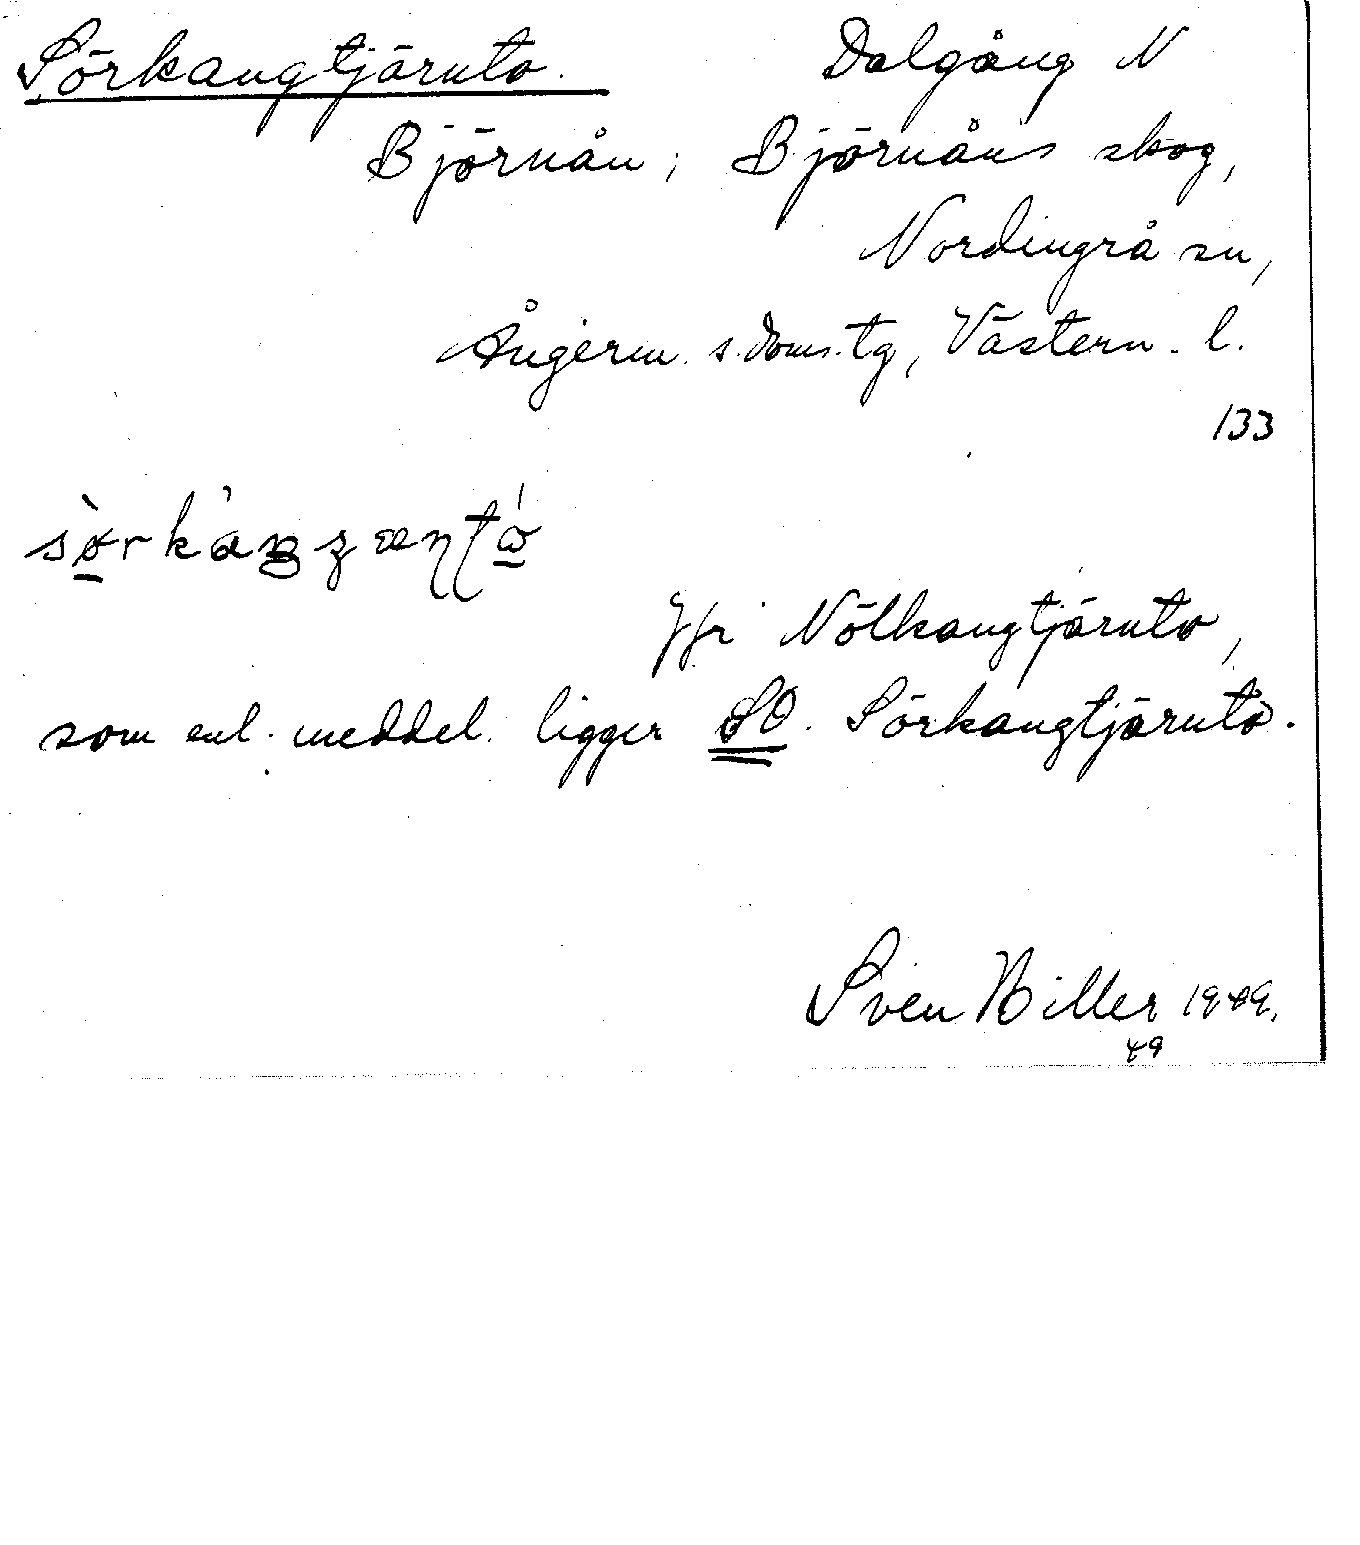 Sörkangtjärnto. Dalgång N
Björnån; Björnåns skog,
Nordingrå sn,
Ångerm. s. doms. tg, Västern. l.
133
Jfr Nölkangtjärnto,
som enl. meddel. ligger SO. Sörkangtjärnto.
Sven Hiller 1949.
49